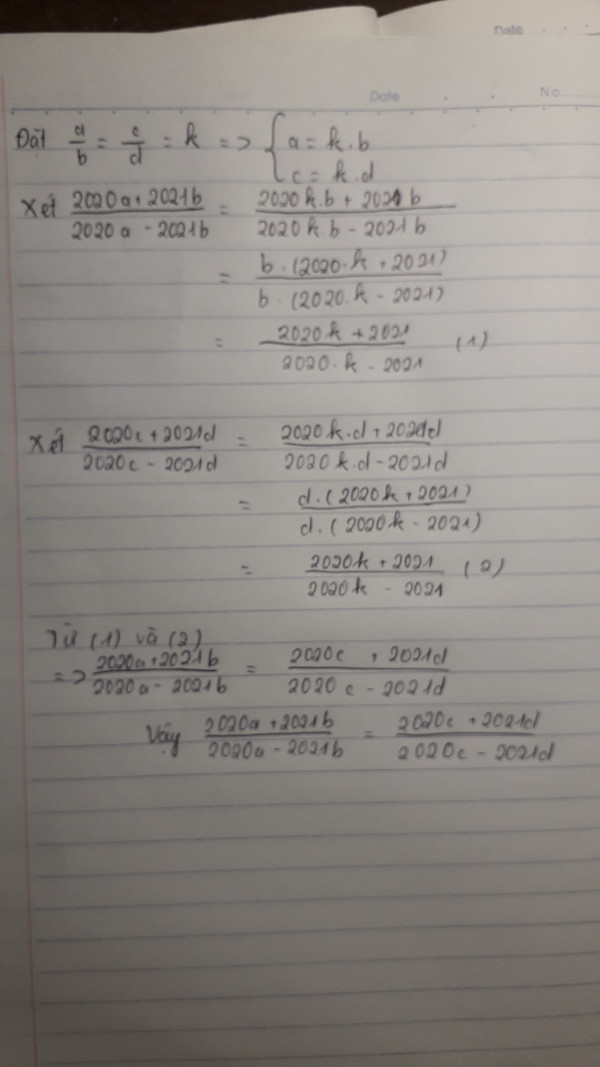 Date
Date No
Đặt a/b = c/d = k => { a = k.b
c = k.d
Xét (2020a + 2021b)/(2020a - 2021b) = (2020k.b + 2021b)/(2020kb - 2021b)
= (b.(2020.k + 2021))/(b.(2020.k - 2021))
= (2020k + 2021)/(2020.k - 2021) (1)
Xét (2020c + 2021d)/(2020c - 2021d) = (2020k.d + 2021d)/(2020k.d - 2021d)
= (d.(2020k + 2021))/(d.(2020k - 2021))
= (2020k + 2021)/(2020k - 2021) (2)
Từ (1) và (2)
=> (2020a + 2021b)/(2020a - 2021b) = (2020c + 2021d)/(2020c - 2021d)
Vậy (2020a + 2021b)/(2020a - 2021b) = (2020c + 2021d)/(2020c - 2021d)